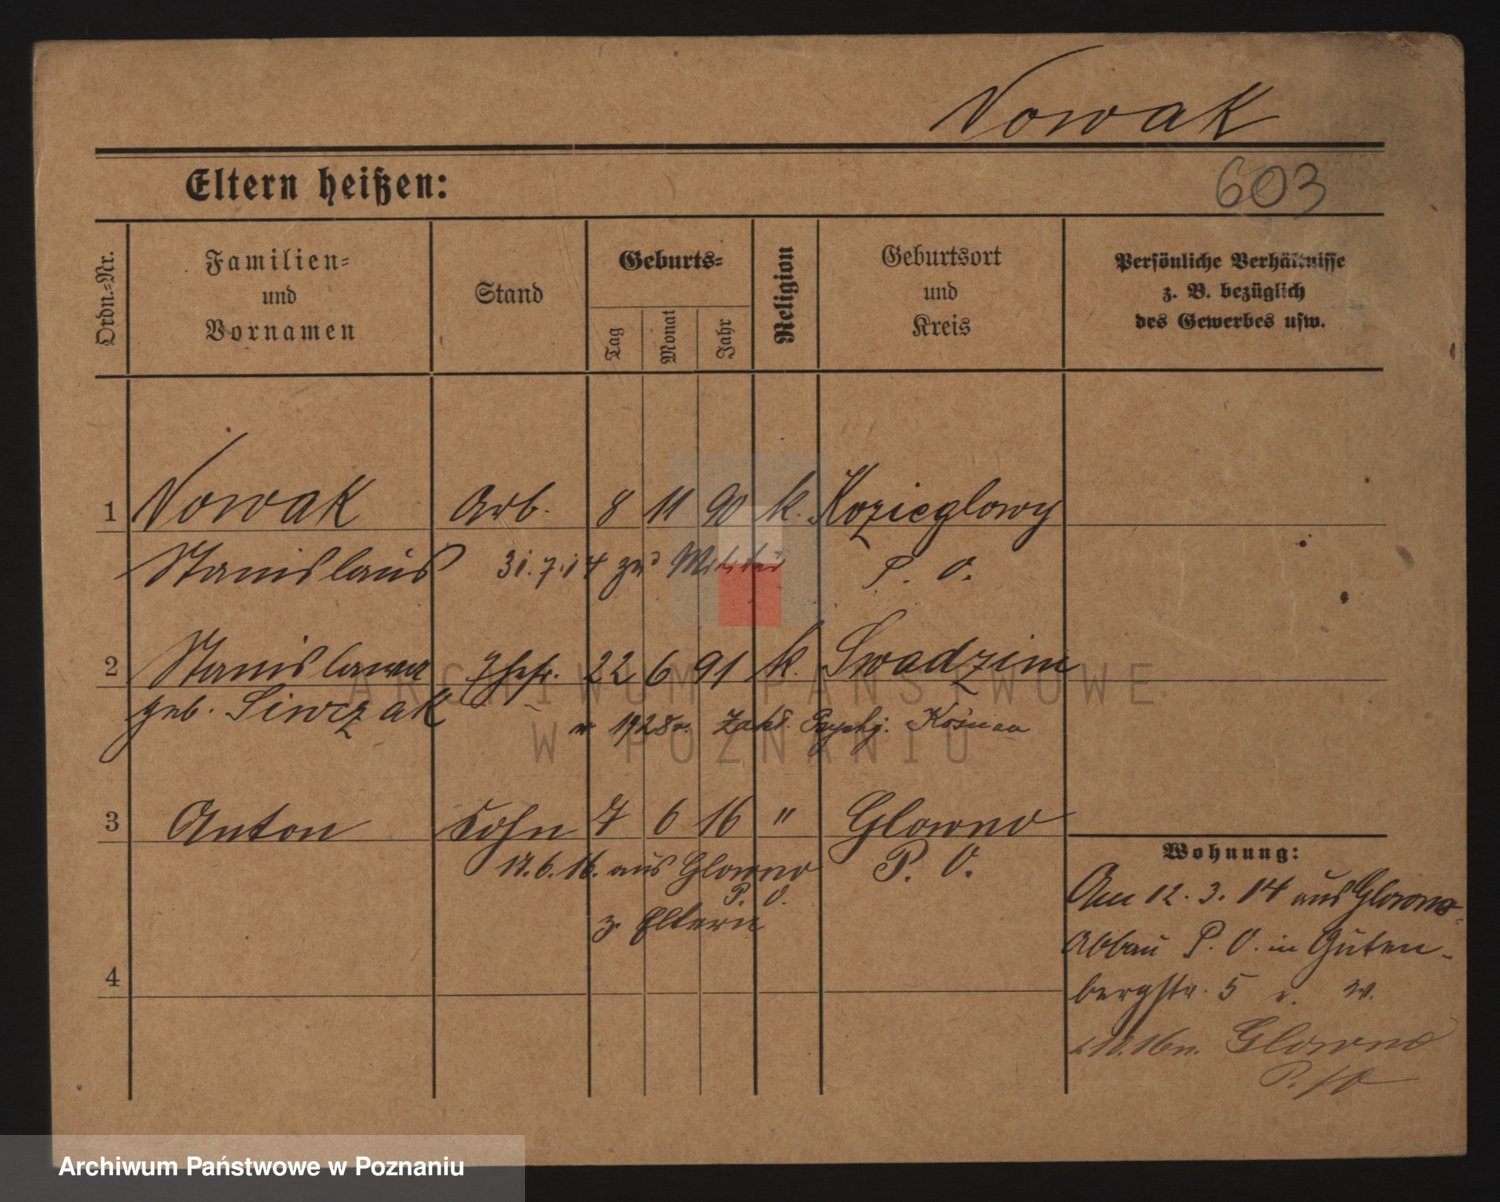 Nowak
603
Eltern heißen:
Ordn.-Nr.
Familien-
und
Vornamen
Stand
Geburts-
Tag
Monat
Jahr
Religion
Geburtsort
und
Kreis
Persönliche Verhältnisse
z. B. bezüglich
des Gewerbes usw.
1 Nowak Arb. 8 11 90 k. Kozieglowy
Stanislaus 31.7.14 zu Militär P. O.
2 Stanislawa Ehefr. 22 6 91 k. Swadzim
geb. Siwczak
1928 Zakł. Psych. Kościan
3 Anton Sohn 7 6 16 " Glowno
17.6.16. aus Glowno P. O.
P. O.
z. Eltern
4
Wohnung:
Am 12.3.14 aus Glowno-
Abbau P. O. in Guten-
bergstr. 5
10.16 n. Glowno
P./O
ARCHIWUM PAŃSTWOWE
W POZNANIU
Archiwum Państwowe w Poznaniu